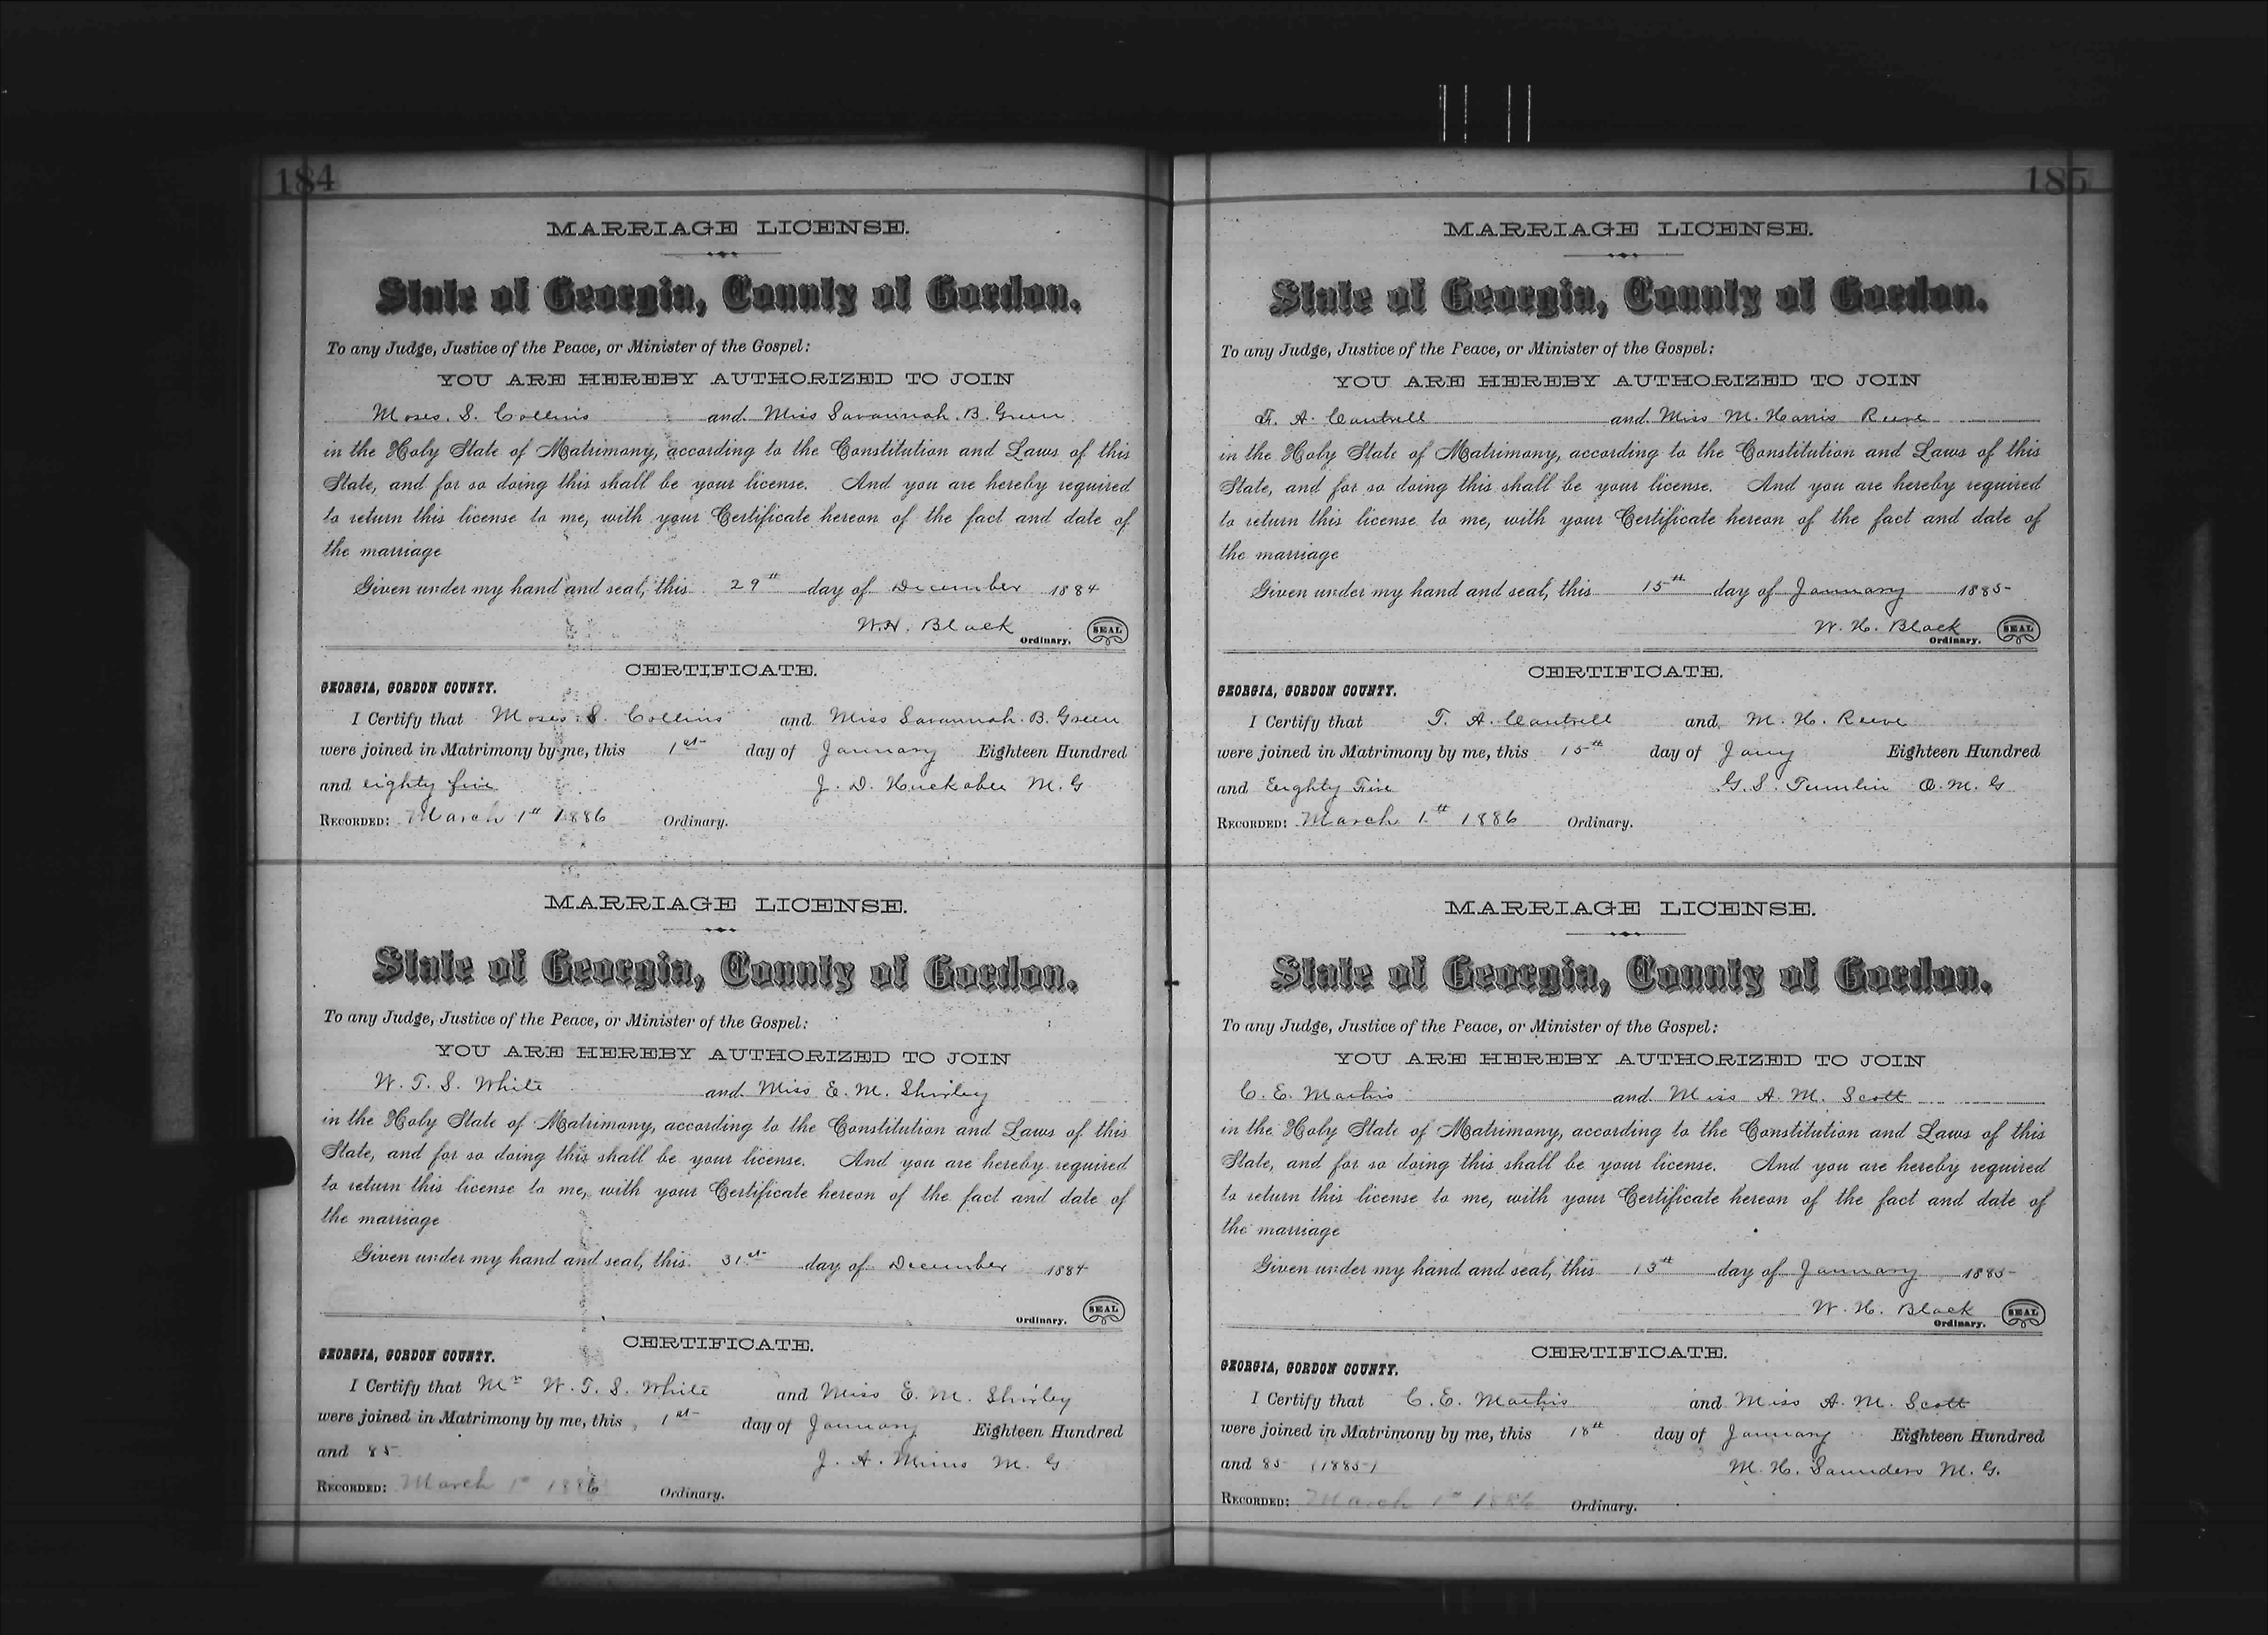 184
MARRIAGE LICENSE.
State of Georgia, County of Gordon.
To any Judge, Justice of the Peace, or Minister of the Gospel:
YOU ARE HEREBY AUTHORIZED TO JOIN
Moses. S. Collins and Miss Savannah. B. Green
in the Holy State of Matrimony, according to the Constitution and Laws of this
State, and for so doing this shall be your license. And you are hereby required
to return this license to me, with your Certificate hereon of the fact and date of
the marriage
Given under my hand and seal, this 29th day of December 1884
W.H. Black
Ordinary. SEAL
CERTIFICATE.
GEORGIA, GORDON COUNTY.
I Certify that Moses. S. Collins and Miss Savannah. B. Green
were joined in Matrimony by me, this 1st day of January Eighteen Hundred
and eighty five J. D. Huckabee M. G
RECORDED: March 1st 1886 Ordinary.
MARRIAGE LICENSE.
State of Georgia, County of Gordon.
To any Judge, Justice of the Peace, or Minister of the Gospel:
YOU ARE HEREBY AUTHORIZED TO JOIN
W. T. S. White and Miss E. M. Shirley
in the Holy State of Matrimony, according to the Constitution and Laws of this
State, and for so doing this shall be your license. And you are hereby required
to return this license to me, with your Certificate hereon of the fact and date of
the marriage
Given under my hand and seal, this 31st day of December 1884
Ordinary. SEAL
CERTIFICATE.
GEORGIA, GORDON COUNTY.
I Certify that Mr W. T. S. White and Miss E. M. Shirley
were joined in Matrimony by me, this 1st day of January Eighteen Hundred
and 85 J. A. Mims M. G
RECORDED: March 1st 1886 Ordinary.
185
MARRIAGE LICENSE.
State of Georgia, County of Gordon.
To any Judge, Justice of the Peace, or Minister of the Gospel:
YOU ARE HEREBY AUTHORIZED TO JOIN
T. A. Cantrell and Miss M. Harris Reeve
in the Holy State of Matrimony, according to the Constitution and Laws of this
State, and for so doing this shall be your license. And you are hereby required
to return this license to me, with your Certificate hereon of the fact and date of
the marriage
Given under my hand and seal, this 15th day of January 1885
W. H. Black
Ordinary. SEAL
CERTIFICATE.
GEORGIA, GORDON COUNTY.
I Certify that T. A. Cantrell and M. H. Reeve
were joined in Matrimony by me, this 15th day of Jany Eighteen Hundred
and Eighty Five G. S. Tumlin O. M. G
RECORDED: March 1st 1886 Ordinary.
MARRIAGE LICENSE.
State of Georgia, County of Gordon.
To any Judge, Justice of the Peace, or Minister of the Gospel:
YOU ARE HEREBY AUTHORIZED TO JOIN
C. E. Mathis and Miss A. M. Scott
in the Holy State of Matrimony, according to the Constitution and Laws of this
State, and for so doing this shall be your license. And you are hereby required
to return this license to me, with your Certificate hereon of the fact and date of
the marriage
Given under my hand and seal, this 13th day of January 1885
W. H. Black
Ordinary. SEAL
CERTIFICATE.
GEORGIA, GORDON COUNTY.
I Certify that C. E. Mathis and Miss A. M. Scott
were joined in Matrimony by me, this 18th day of January Eighteen Hundred
and 85 (1885) M. H. Saunders M. G.
RECORDED: March 1st 1886 Ordinary.